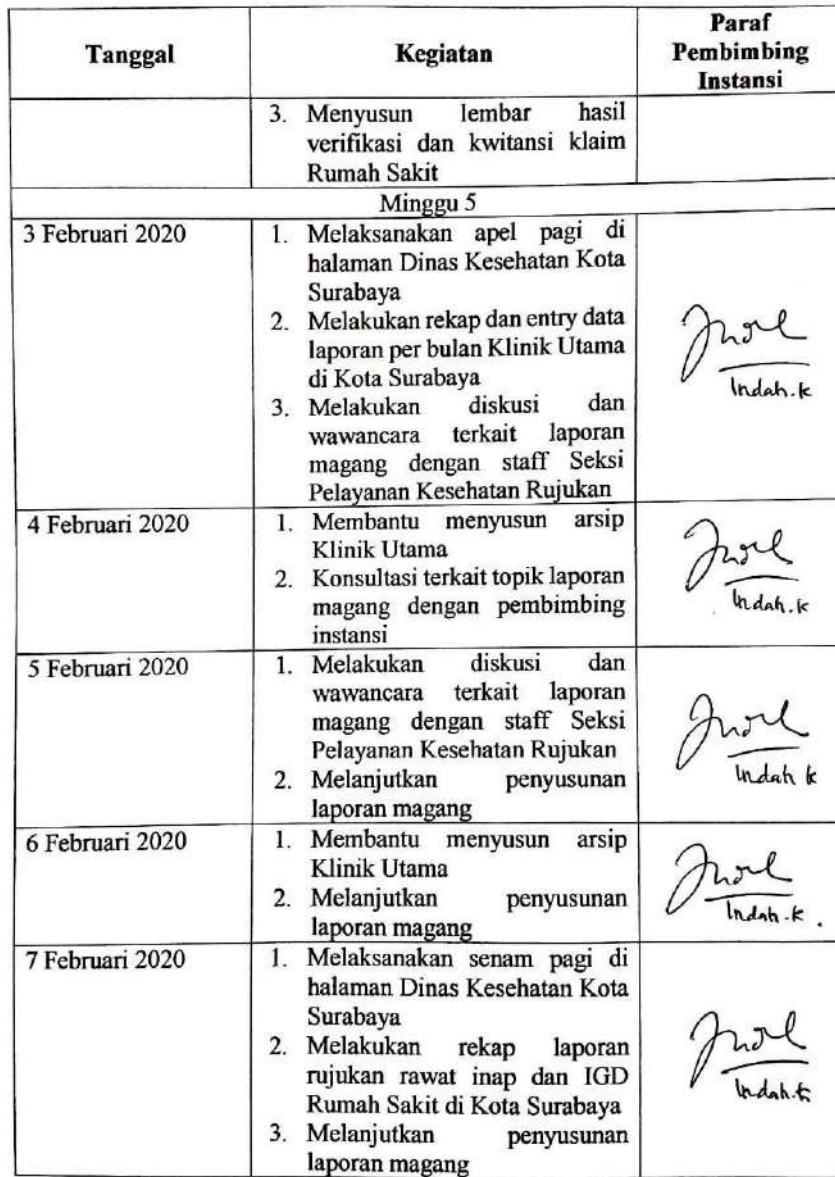 Tanggal
Kegiatan
Paraf
Pembimbing
Instansi
3. Menyusun lembar hasil
verifikasi dan kwitansi klaim
Rumah Sakit
Minggu 5
3 Februari 2020
1. Melaksanakan apel pagi di
halaman Dinas Kesehatan Kota
Surabaya
2. Melakukan rekap dan entry data
laporan per bulan Klinik Utama
di Kota Surabaya
3. Melakukan diskusi dan
wawancara terkait laporan
magang dengan staff Seksi
Pelayanan Kesehatan Rujukan
Indah.k
4 Februari 2020
1. Membantu menyusun arsip
Klinik Utama
2. Konsultasi terkait topik laporan
magang dengan pembimbing
instansi
Indah.k
5 Februari 2020
1. Melakukan diskusi dan
wawancara terkait laporan
magang dengan staff Seksi
Pelayanan Kesehatan Rujukan
2. Melanjutkan penyusunan
laporan magang
Indah k
6 Februari 2020
1. Membantu menyusun arsip
Klinik Utama
2. Melanjutkan penyusunan
laporan magang
Indah.k.
7 Februari 2020
1. Melaksanakan senam pagi di
halaman Dinas Kesehatan Kota
Surabaya
2. Melakukan rekap laporan
rujukan rawat inap dan IGD
Rumah Sakit di Kota Surabaya
3. Melanjutkan penyusunan
laporan magang
Indah.k